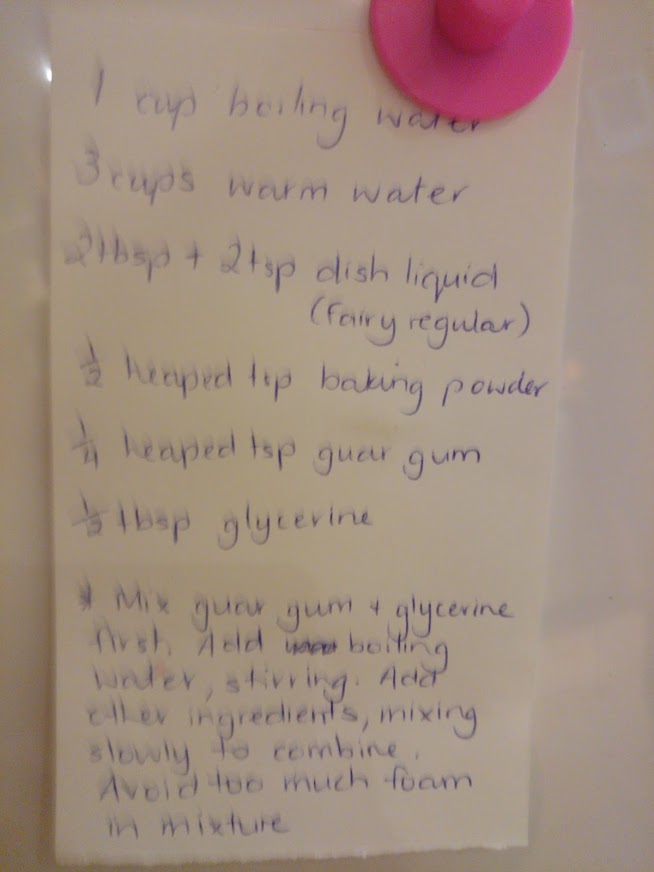 1 cup boiling water
3 cups warm water
2tbsp + 2tsp dish liquid
(fairy regular)
1/2 heaped tsp baking powder
1/4 heaped tsp guar gum
1/2 tbsp glycerine
* Mix guar gum + glycerine
first. Add boiling
water, stirring. Add
other ingredients, mixing
slowly to combine.
Avoid too much foam
in mixture